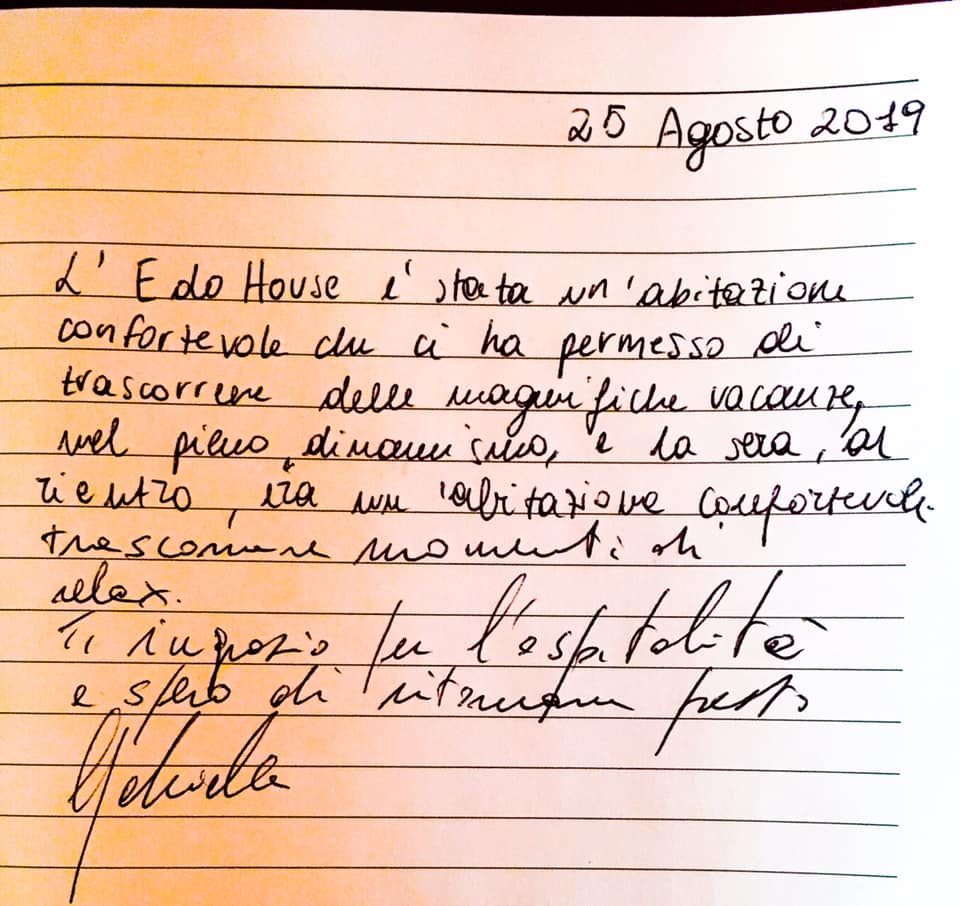 25 Agosto 2019
L' Edo House é stata un'abitazione
confortevole che ci ha permesso di
trascorrere delle magnifiche vacanze,
nel pieno dinamismo, e la sera, al
rientro, era un'abitazione confortevole
trascorrere momenti di
relax.
Ti ringrazio per l'ospitalità
e spero di ritornare presto